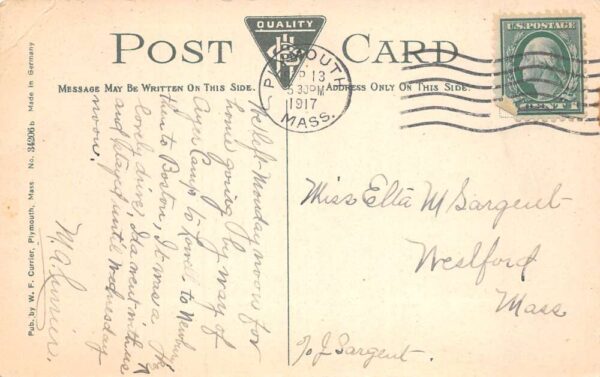 POST CARD
QUALITY
MESSAGE MAY BE WRITTEN ON THIS SIDE.
ADDRESS ONLY ON THIS SIDE.
PLYMOUTH
SEP 13
5 30PM
1917
MASS.
U.S. POSTAGE
CENT 1
We left Monday noon for
home going by way of
Ayer Camp to Lowell to Newbury
then to Boston, It was a
lovely drive, Ida went with us
and stayed until Wednesday
noon.
M. A. Currier.
Miss Elta M Sargent
Westford
Mass
c/o J. Sargent.
Pub. by W. F. Currier, Plymouth, Mass No. 34206 b Made in Germany